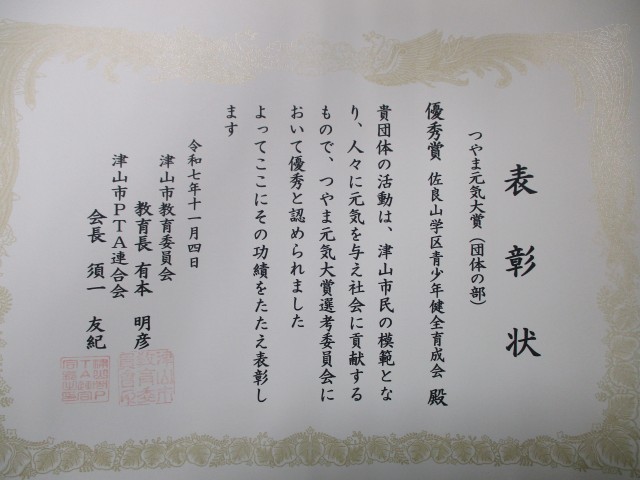 表彰状
つやま元気大賞（団体の部）
優秀賞 佐良山学区青少年健全育成会 殿
貴団体の活動は、津山市民の模範とな
り、人々に元気を与え社会に貢献する
もので、つやま元気大賞選考委員会に
おいて優秀と認められました
よってここにその功績をたたえ表彰し
ます
令和七年十一月四日
津山市教育委員会
教育長 有本 明彦
津山市ＰＴＡ連合会
会長 須一 友紀